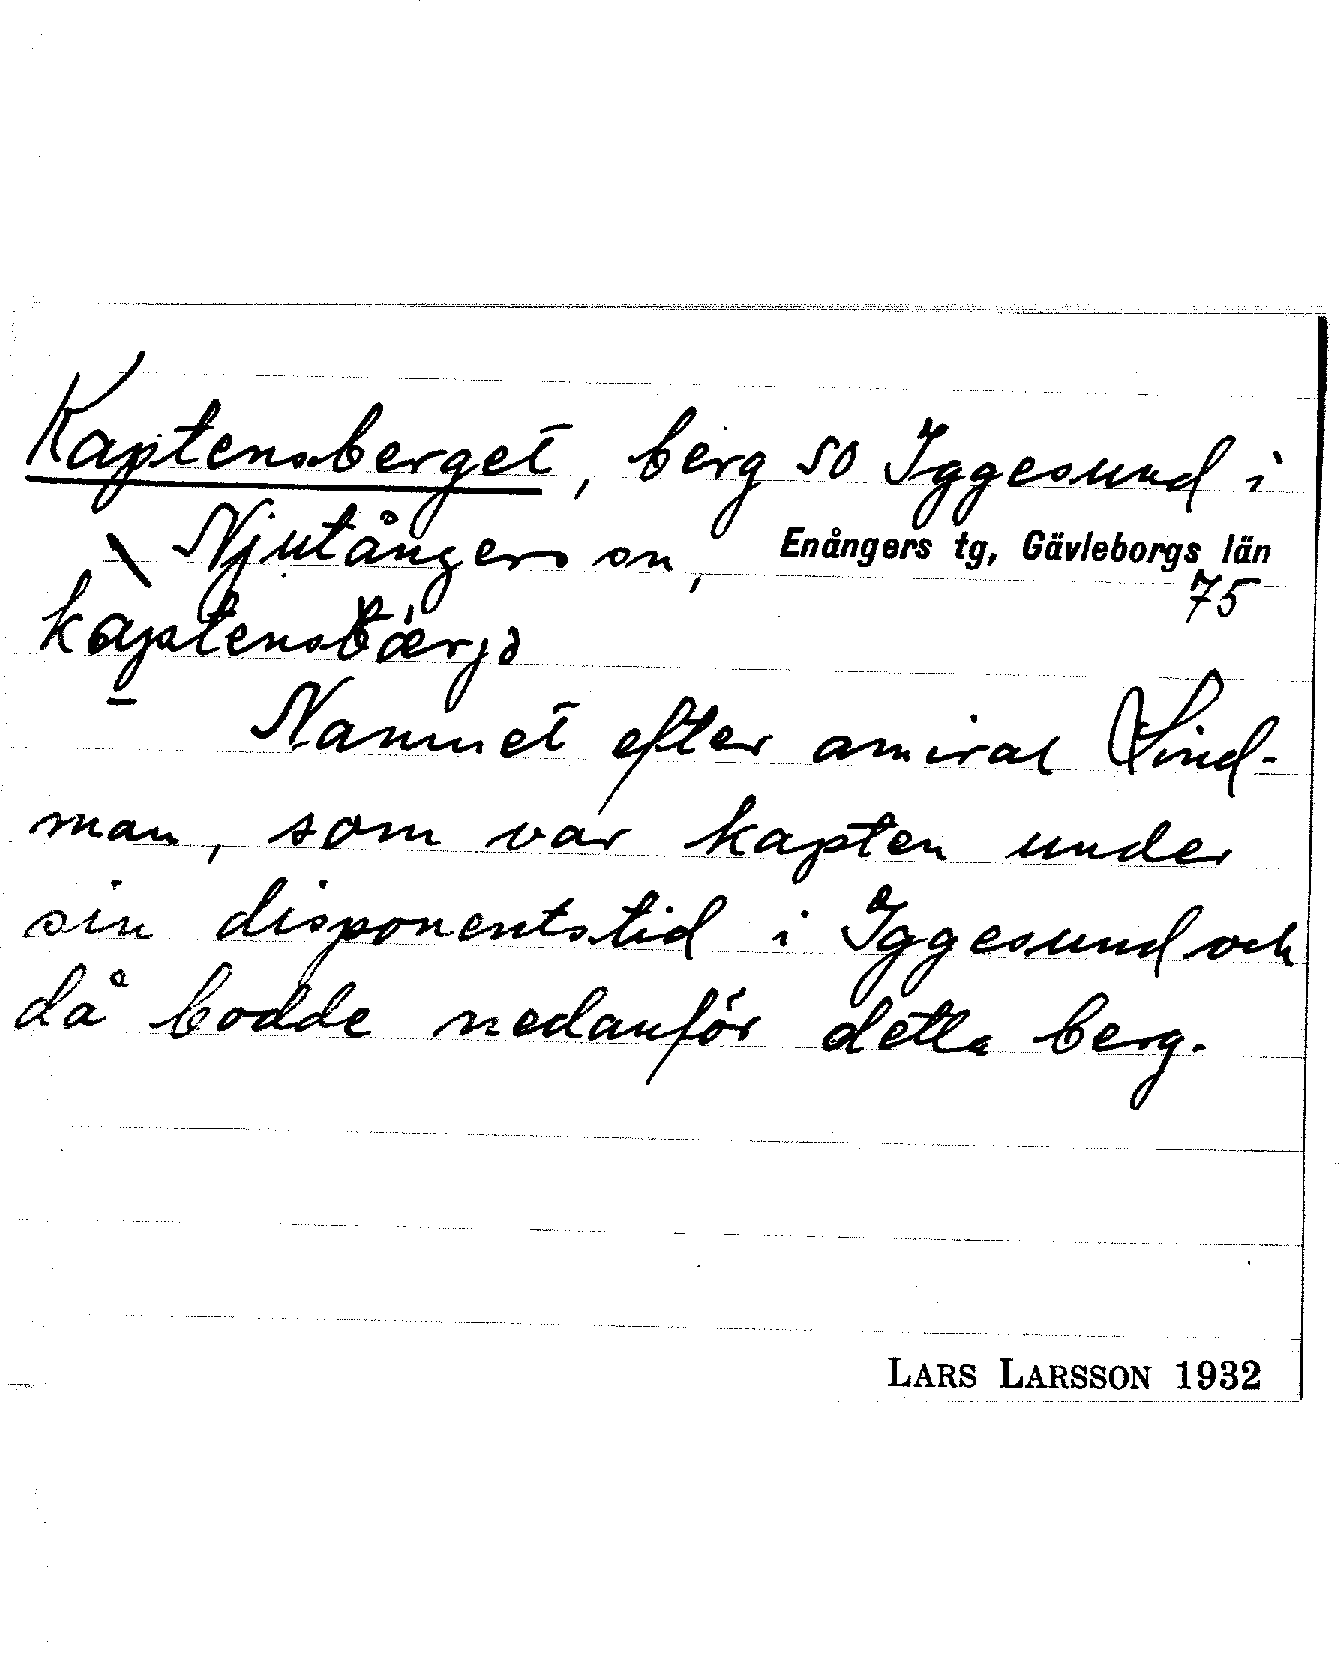 Kaptensberget, berg SO Iggesund i
Njutångers sn, Enångers tg, Gävleborgs län
75
kàptensbæ̀rjə
Namnet efter amiral Lind-
man, som var kapten under
sin disponentstid i Iggesund och
då bodde nedanför detta berg.
LARS LARSSON 1932